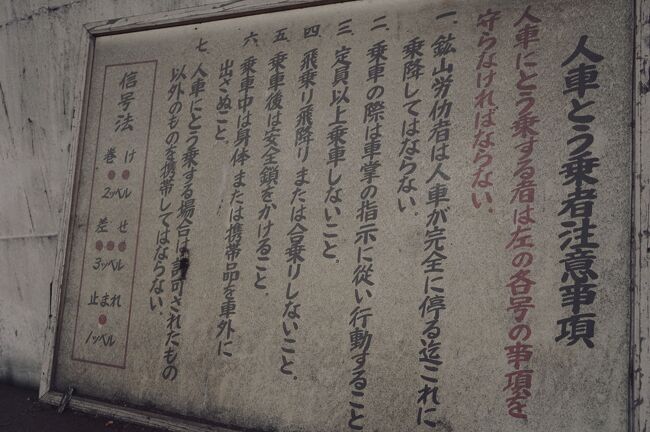 人車とう乗者注意事項
人車にとう乗する者は左の各号の事項を
守らなければならない.
一. 鉱山労仂者は人車が完全に停る迄これに
乗降してはならない.
二. 乗車の際は車掌の指示に従い行動すること
三. 定員以上乗車しないこと.
四. 飛乗り飛降り または合乗りしないこと.
五. 乗車後は安全鎖をかけること.
六. 乗車中は身体または携帯品を車外に
出さぬこと.
七. 人車にとう乗する場合は許可されたもの
以外のものを携帯してはならない.
信号法
巻け
2ッベル
差せ
3ッベル
止まれ
1ッベル